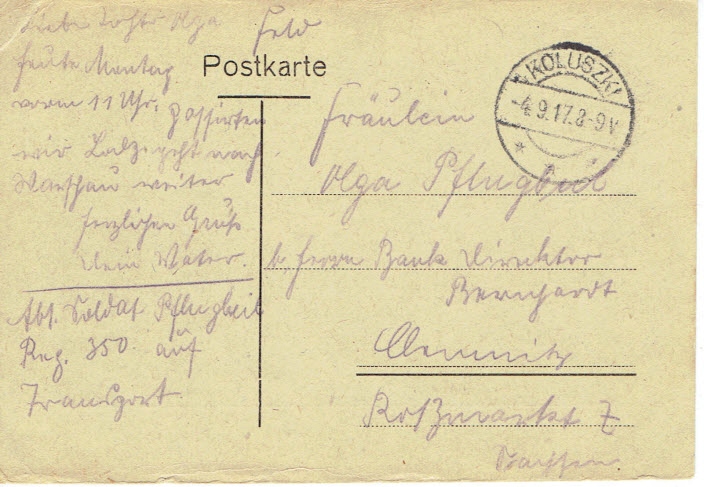 Liebe Tochter Olga
heute Montag
vorm 11 Uhr. Passirten
wir Lodz geht nach
Warschau weiter
herzlichen Gruß
Dein Vater.
Abs. Soldat Pflugbeil
Reg. 350 auf
Transport.
Feld
Postkarte
KOLUSZKI
-4.9.17.8-9V
Fräulein
Olga Pflugbeil
b. Herrn Bank Direktor
Bernhardt
Chemnitz
Roßmarkt
Sachsen.